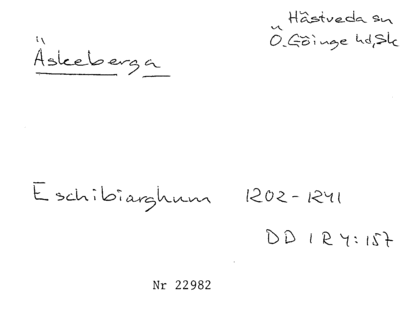 Hästveda sn
Äskeberga
Ö. Göinge hd, Sk
Eschibiarghum 1202-1241
DD 1 R 4:157
Nr 22982